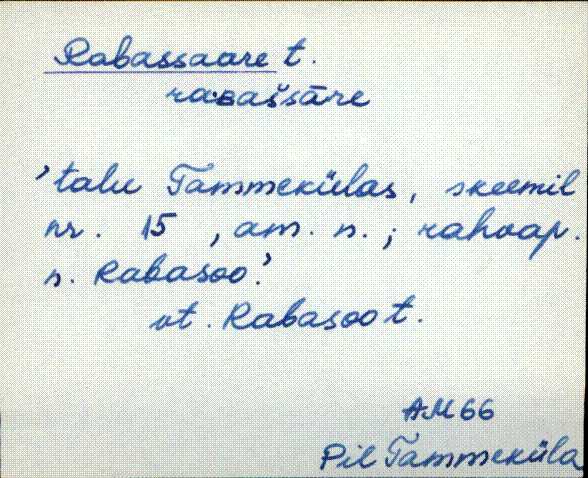 Rabassaare t.
raʙašsāre
'talu Tammekülas, skeemil
nr. 15, am. n.; rahvap.
n. Rabasoo.'
vt. Rabasoo t.
AM 66
Pil Tammeküla